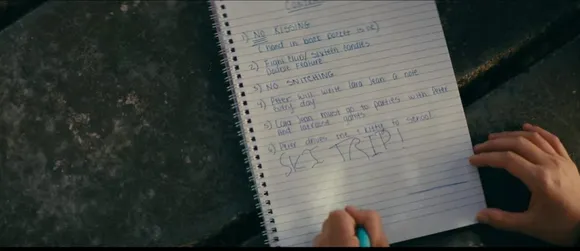 1) NO KISSING
(hand in back pocket is ok)
2) Fight Club / Sixteen Candles
3) NO SNITCHING
4) Peter will write Lara Jean a note
every day
5) Lara Jean must go to parties with Peter
and lacrosse games
6) Peter drives me + Kitty to school
SKI TRIP!